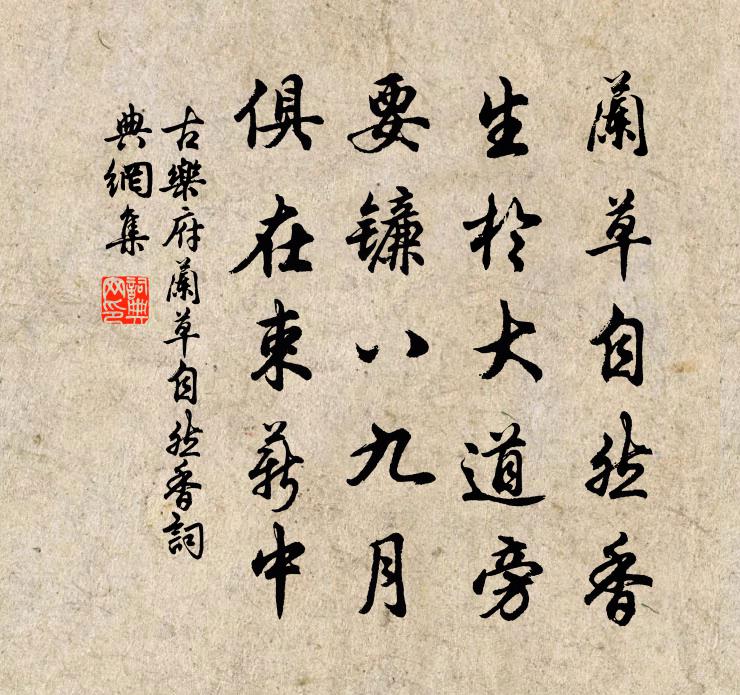 蘭草自然香
生於大道旁
要鐮八九月
俱在束薪中
古樂府蘭草自然香詞
典網集
詞典
网印